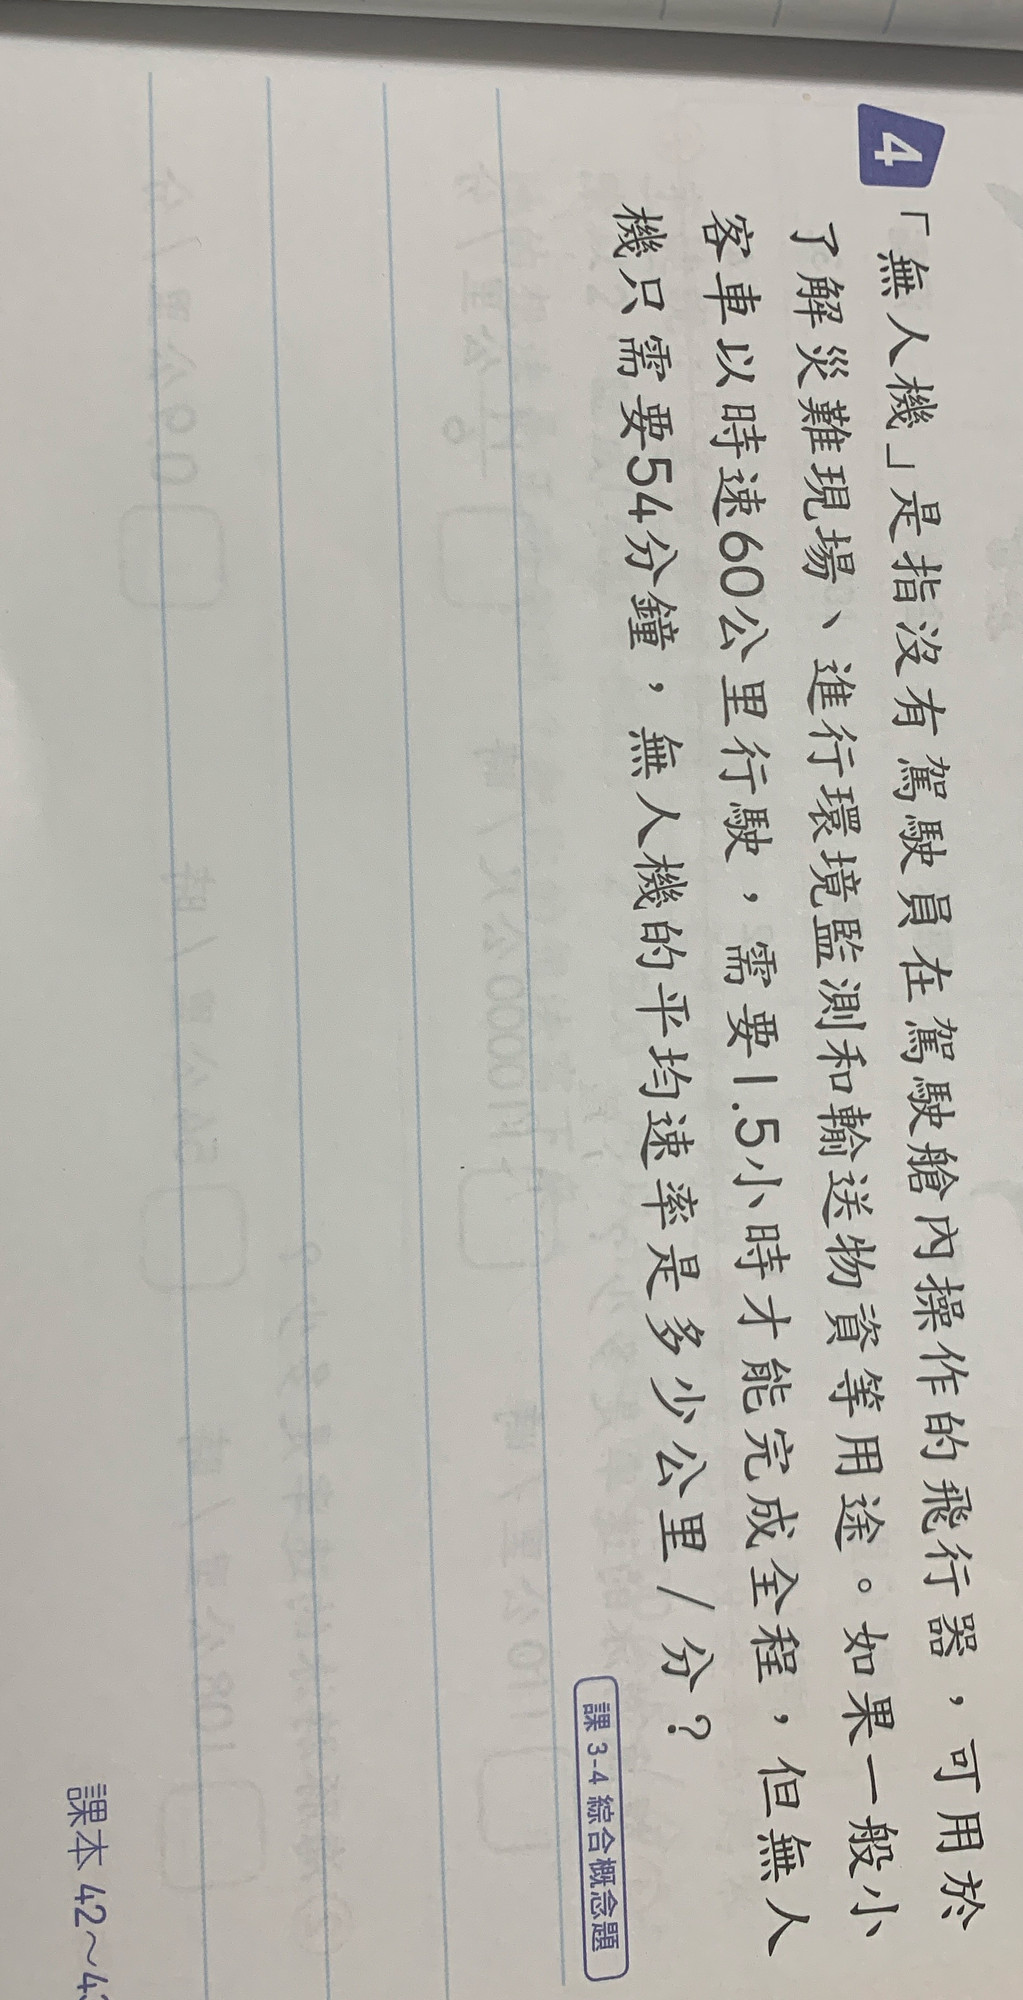 4
「無人機」是指沒有駕駛員在駕駛艙內操作的飛行器，可用於
了解災難現場、進行環境監測和輸送物資等用途。如果一般小
客車以時速60公里行駛，需要1.5小時才能完成全程，但無人
機只需要54分鐘，無人機的平均速率是多少公里/分？
課 3-4 綜合概念題
課本 42～43